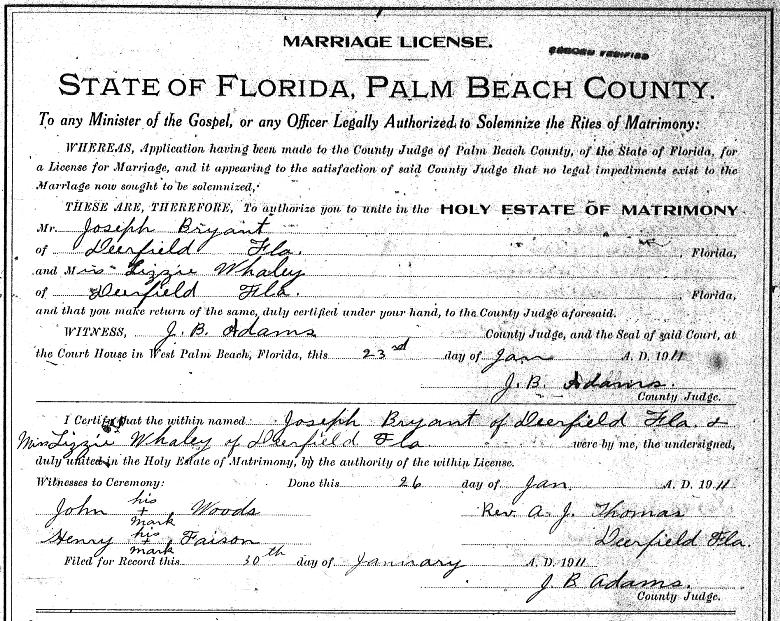 MARRIAGE LICENSE.
RECORD VERIFIED
STATE OF FLORIDA, PALM BEACH COUNTY.
To any Minister of the Gospel, or any Officer Legally Authorized to Solemnize the Rites of Matrimony:
WHEREAS, Application having been made to the County Judge of Palm Beach County, of the State of Florida, for
a License for Marriage, and it appearing to the satisfaction of said County Judge that no legal impediments exist to the
Marriage now sought to be solemnized,
THESE ARE, THEREFORE, To authorize you to unite in the HOLY ESTATE OF MATRIMONY
Mr. Joseph Bryant
of Deerfield Fla. , Florida,
and Miss Lizzie Whaley
of Deerfield Fla. , Florida,
and that you make return of the same, duly certified under your hand, to the County Judge aforesaid.
WITNESS, J. B. Adams County Judge, and the Seal of said Court, at
the Court House in West Palm Beach, Florida, this 23rd day of Jan A. D. 1911
J. B. Adams.
County Judge.
I Certify that the within named Joseph Bryant of Deerfield Fla. &
Miss Lizzie Whaley of Deerfield Fla were by me, the undersigned,
duly united in the Holy Estate of Matrimony, by the authority of the within License.
Witnesses to Ceremony: Done this 26 day of Jan, A. D. 1911
John his + mark Woods Rev. A. J. Thomas
Henry his + mark Faison Deerfield Fla.
Filed for Record this 30th day of January A. D. 1911
J. B. Adams.
County Judge.